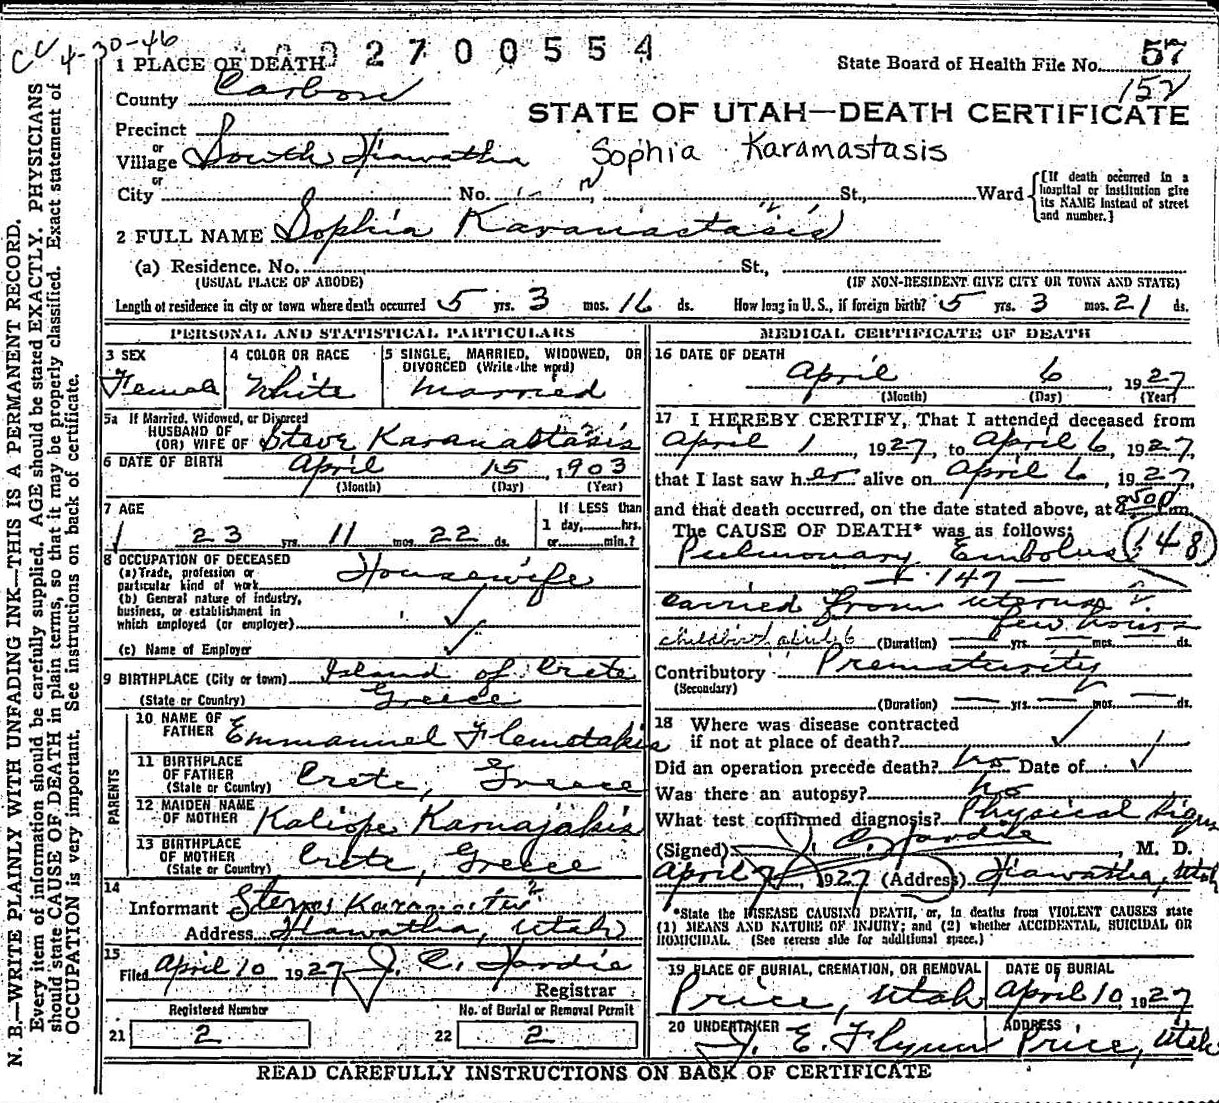 CV 4-30-46
002700554
1 PLACE OF DEATH
State Board of Health File No. 57
152
County Carbon
STATE OF UTAH—DEATH CERTIFICATE
Precinct
or
Village South Hiawatha
Sophia Karamastasis
or
City No. St., Ward
[If death occurred in a hospital or institution give its NAME instead of street and number.]
2 FULL NAME Sophia Karanastasis
(a) Residence. No. St.,
(USUAL PLACE OF ABODE) (IF NON-RESIDENT GIVE CITY OR TOWN AND STATE)
Length of residence in city or town where death occurred 5 yrs. 3 mos. 16 ds. How long in U.S., if foreign birth? 5 yrs. 3 mos. 21 ds.
PERSONAL AND STATISTICAL PARTICULARS
3 SEX
Female
4 COLOR OR RACE
White
5 SINGLE, MARRIED, WIDOWED, OR
DIVORCED (Write the word)
Married
5a If Married, Widowed, or Divorced
HUSBAND OF
(OR) WIFE OF Steve Karanastasis
6 DATE OF BIRTH April 15, 1903
(Month) (Day) (Year)
7 AGE
23 yrs. 11 mos. 22 ds.
If LESS than
1 day, hrs.
or min.?
8 OCCUPATION OF DECEASED
(a) Trade, profession or
particular kind of work Housewife
(b) General nature of industry,
business, or establishment in
which employed (or employer)
(c) Name of Employer
9 BIRTHPLACE (City or town) Island of Crete
(State or Country) Greece
PARENTS
10 NAME OF
FATHER Emmanuel
11 BIRTHPLACE
OF FATHER
(State or Country) Crete, Greece
12 MAIDEN NAME
OF MOTHER Kaliope
13 BIRTHPLACE
OF MOTHER
(State or Country) Crete, Greece
14
Informant
Address Hiawatha, Utah
15
Filed April 10 1927 J. C. Hardie
Registrar
Registered Number
21 2
No. of Burial or Removal Permit
22 2
MEDICAL CERTIFICATE OF DEATH
16 DATE OF DEATH
April 6, 1927
(Month) (Day) (Year)
17 I HEREBY CERTIFY, That I attended deceased from
April 1, 1927, to April 6, 1927,
that I last saw her alive on April 6, 1927,
and that death occurred, on the date stated above, at m.
The CAUSE OF DEATH* was as follows:
Pulmonary Embolus 148
147
carried from uterus
few hours
childbirth april 6 (Duration) yrs. mos. ds.
Contributory Prematurity
(Secondary)
(Duration) yrs. mos. ds.
18 Where was disease contracted
if not at place of death?
Did an operation precede death? No Date of
Was there an autopsy? no
What test confirmed diagnosis? Physical Signs
(Signed) J. C. Hardie, M. D.
April 7, 1927 (Address) Hiawatha, Utah
*State the DISEASE CAUSING DEATH, or, in deaths from VIOLENT CAUSES state
(1) MEANS AND NATURE OF INJURY; and (2) whether ACCIDENTAL, SUICIDAL OR
HOMICIDAL. (See reverse side for additional space.)
19 PLACE OF BURIAL, CREMATION, OR REMOVAL
Price, Utah
DATE OF BURIAL
April 10, 1927
20 UNDERTAKER
J. E. Flynn
ADDRESS
Price, Utah
READ CAREFULLY INSTRUCTIONS ON BACK OF CERTIFICATE
N. B.—WRITE PLAINLY WITH UNFADING INK—THIS IS A PERMANENT RECORD.
Every item of information should be carefully supplied. AGE should be stated EXACTLY. PHYSICIANS
should state CAUSE OF DEATH in plain terms, so that it may be properly classified. Exact statement of
OCCUPATION is very important. See instructions on back of certificate.